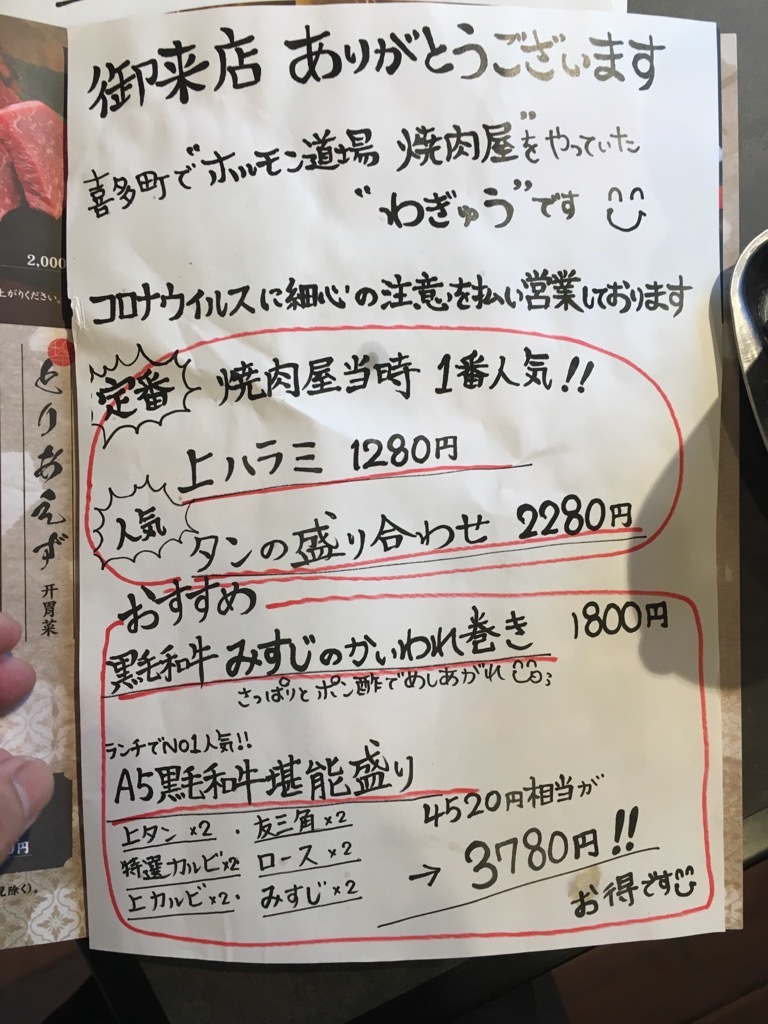 御来店 ありがとうございます
喜多町で"ホルモン道場 焼肉屋"をやっていた
"わぎゅう"です
コロナウイルスに細心の注意を払い営業しております
定番 焼肉屋当時 1番人気!!
上ハラミ 1280円
人気
タンの盛り合わせ 2280円
おすすめ
黒毛和牛 みすじのかいわれ巻き 1800円
さっぱりとポン酢でめしあがれ
ランチでNO1人気!!
A5黒毛和牛堪能盛り
上タン×2・友三角×2
特選カルビ×2 ロース×2
上カルビ×2・みすじ×2
4520円相当が
→ 3780円!!
お得です
2,000
上がりください。
とりあえず
开胃菜
円
除く)。